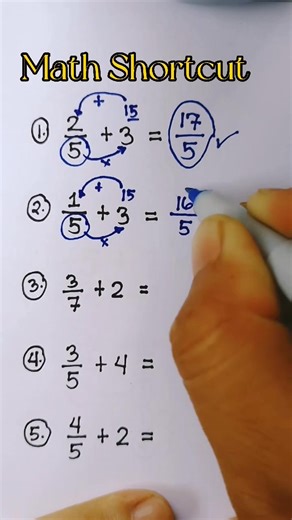 Math Shortcut
1. 2/5 + 3 = 17/5 ✓
+ 15 x
2. 1/5 + 3 = 16/5
+ 15 x
3. 3/7 + 2 =
4. 3/5 + 4 =
5. 4/5 + 2 =